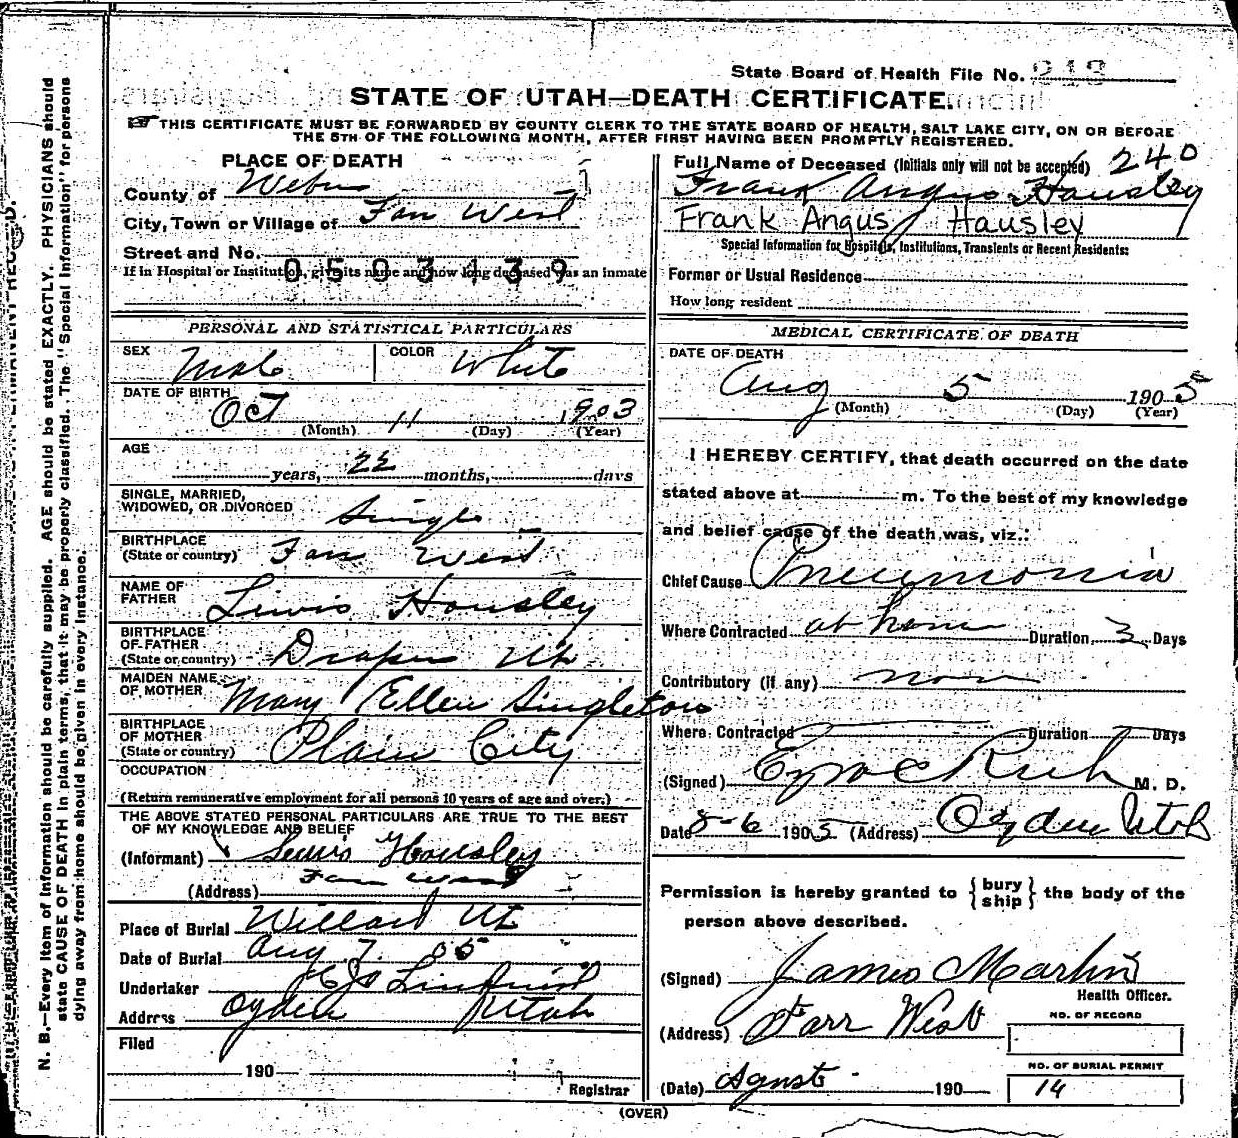 State Board of Health File No. 248
STATE OF UTAH—DEATH CERTIFICATE.
THIS CERTIFICATE MUST BE FORWARDED BY COUNTY CLERK TO THE STATE BOARD OF HEALTH, SALT LAKE CITY, ON OR BEFORE
THE 5TH OF THE FOLLOWING MONTH, AFTER FIRST HAVING BEEN PROMPTLY REGISTERED.
N. B.—Every item of information should be carefully supplied. AGE should be stated EXACTLY. PHYSICIANS should
state CAUSE OF DEATH in plain terms, that it may be properly classified. The "Special Information" for persons
dying away from home should be given in every instance.
PLACE OF DEATH
County of Weber
City, Town or Village of Farr West
Street and No.
If in Hospital or Institution, give its name and how long deceased was an inmate
0503139
PERSONAL AND STATISTICAL PARTICULARS
SEX Male COLOR White
DATE OF BIRTH
Oct 11 1903
(Month) (Day) (Year)
AGE
years, 22 months, days
SINGLE, MARRIED,
WIDOWED, OR DIVORCED Single
BIRTHPLACE
(State or country) Farr West
NAME OF
FATHER Lewis Housley
BIRTHPLACE
OF FATHER
(State or country) Draper Ut
MAIDEN NAME
OF MOTHER Mary Ellen Singleton
BIRTHPLACE
OF MOTHER
(State or country) Plain City
OCCUPATION
(Return remunerative employment for all persons 10 years of age and over.)
THE ABOVE STATED PERSONAL PARTICULARS ARE TRUE TO THE BEST
OF MY KNOWLEDGE AND BELIEF
(Informant) Lewis Housley
(Address) Farr West
Place of Burial Willard Ut
Date of Burial Aug 7. 05
Undertaker Lindquist
Address Ogden Utah
Filed
190
Registrar
240
Full Name of Deceased (Initials only will not be accepted)
Frank Angus Hausley
Frank Angus Hausley
Special Information for Hospitals, Institutions, Transients or Recent Residents:
Former or Usual Residence
How long resident
MEDICAL CERTIFICATE OF DEATH
DATE OF DEATH
Aug 5 1905
(Month) (Day) (Year)
I HEREBY CERTIFY, that death occurred on the date
stated above at m. To the best of my knowledge
and belief cause of the death was, viz.:
Chief Cause Pneumonia
Where Contracted at home Duration 3 Days
Contributory (if any) none
Where Contracted Duration Days
(Signed) Ezra C Rich M. D.
Date 8-6 1905 (Address) Ogden Utah
Permission is hereby granted to {bury ship} the body of the
person above described.
(Signed) James Martin
Health Officer.
(Address) Farr West
NO. OF RECORD
NO. OF BURIAL PERMIT
(Date) Agust 190 14
(OVER)